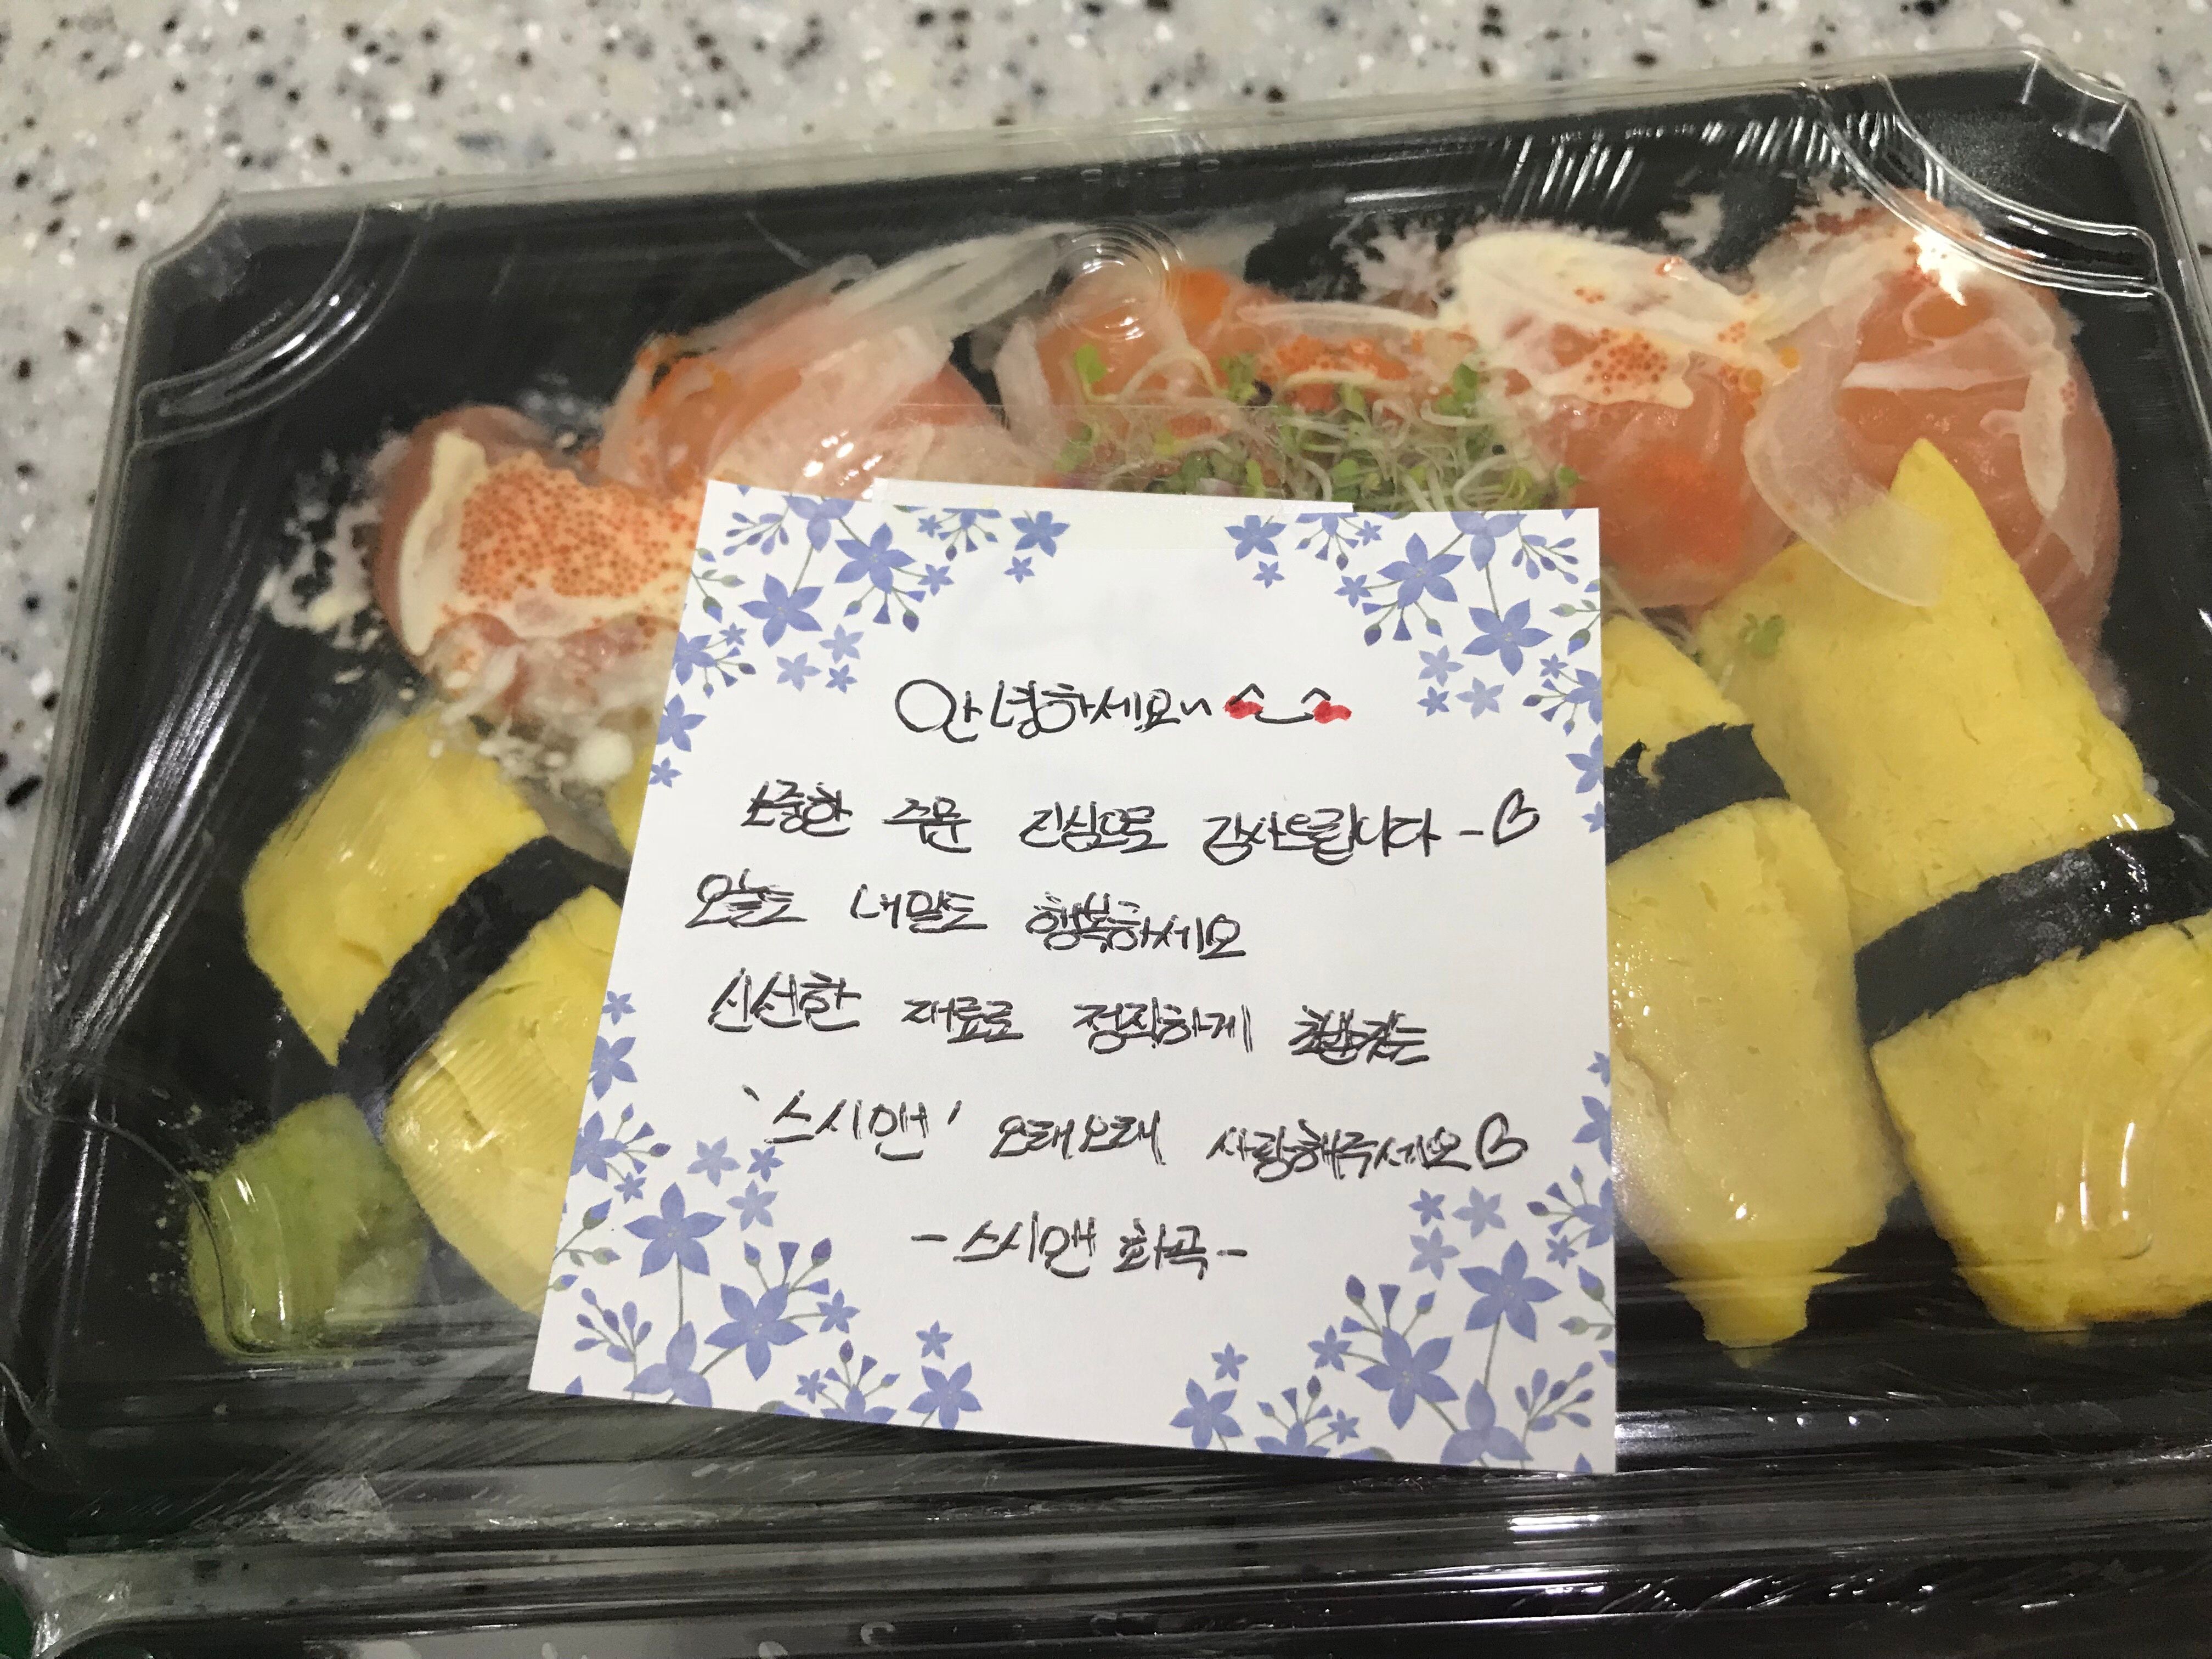 안녕하세요~ ^_^
소중한 주문 진심으로 감사드립니다-♡
오늘도 내일도 행복하세요
신선한 재료로 정직하게 보답하는
'스시맨' 오래오래 사랑해주세요♡
-스시맨 화곡-